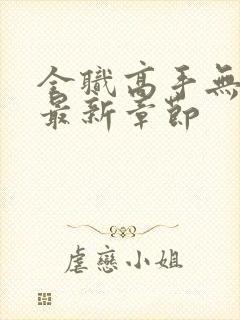 全職高手無
最新章節
虐戀小姐